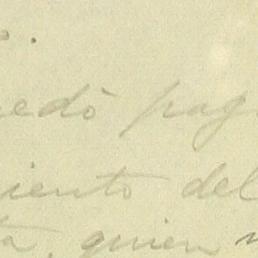 edò pag
iento del
ta, quien